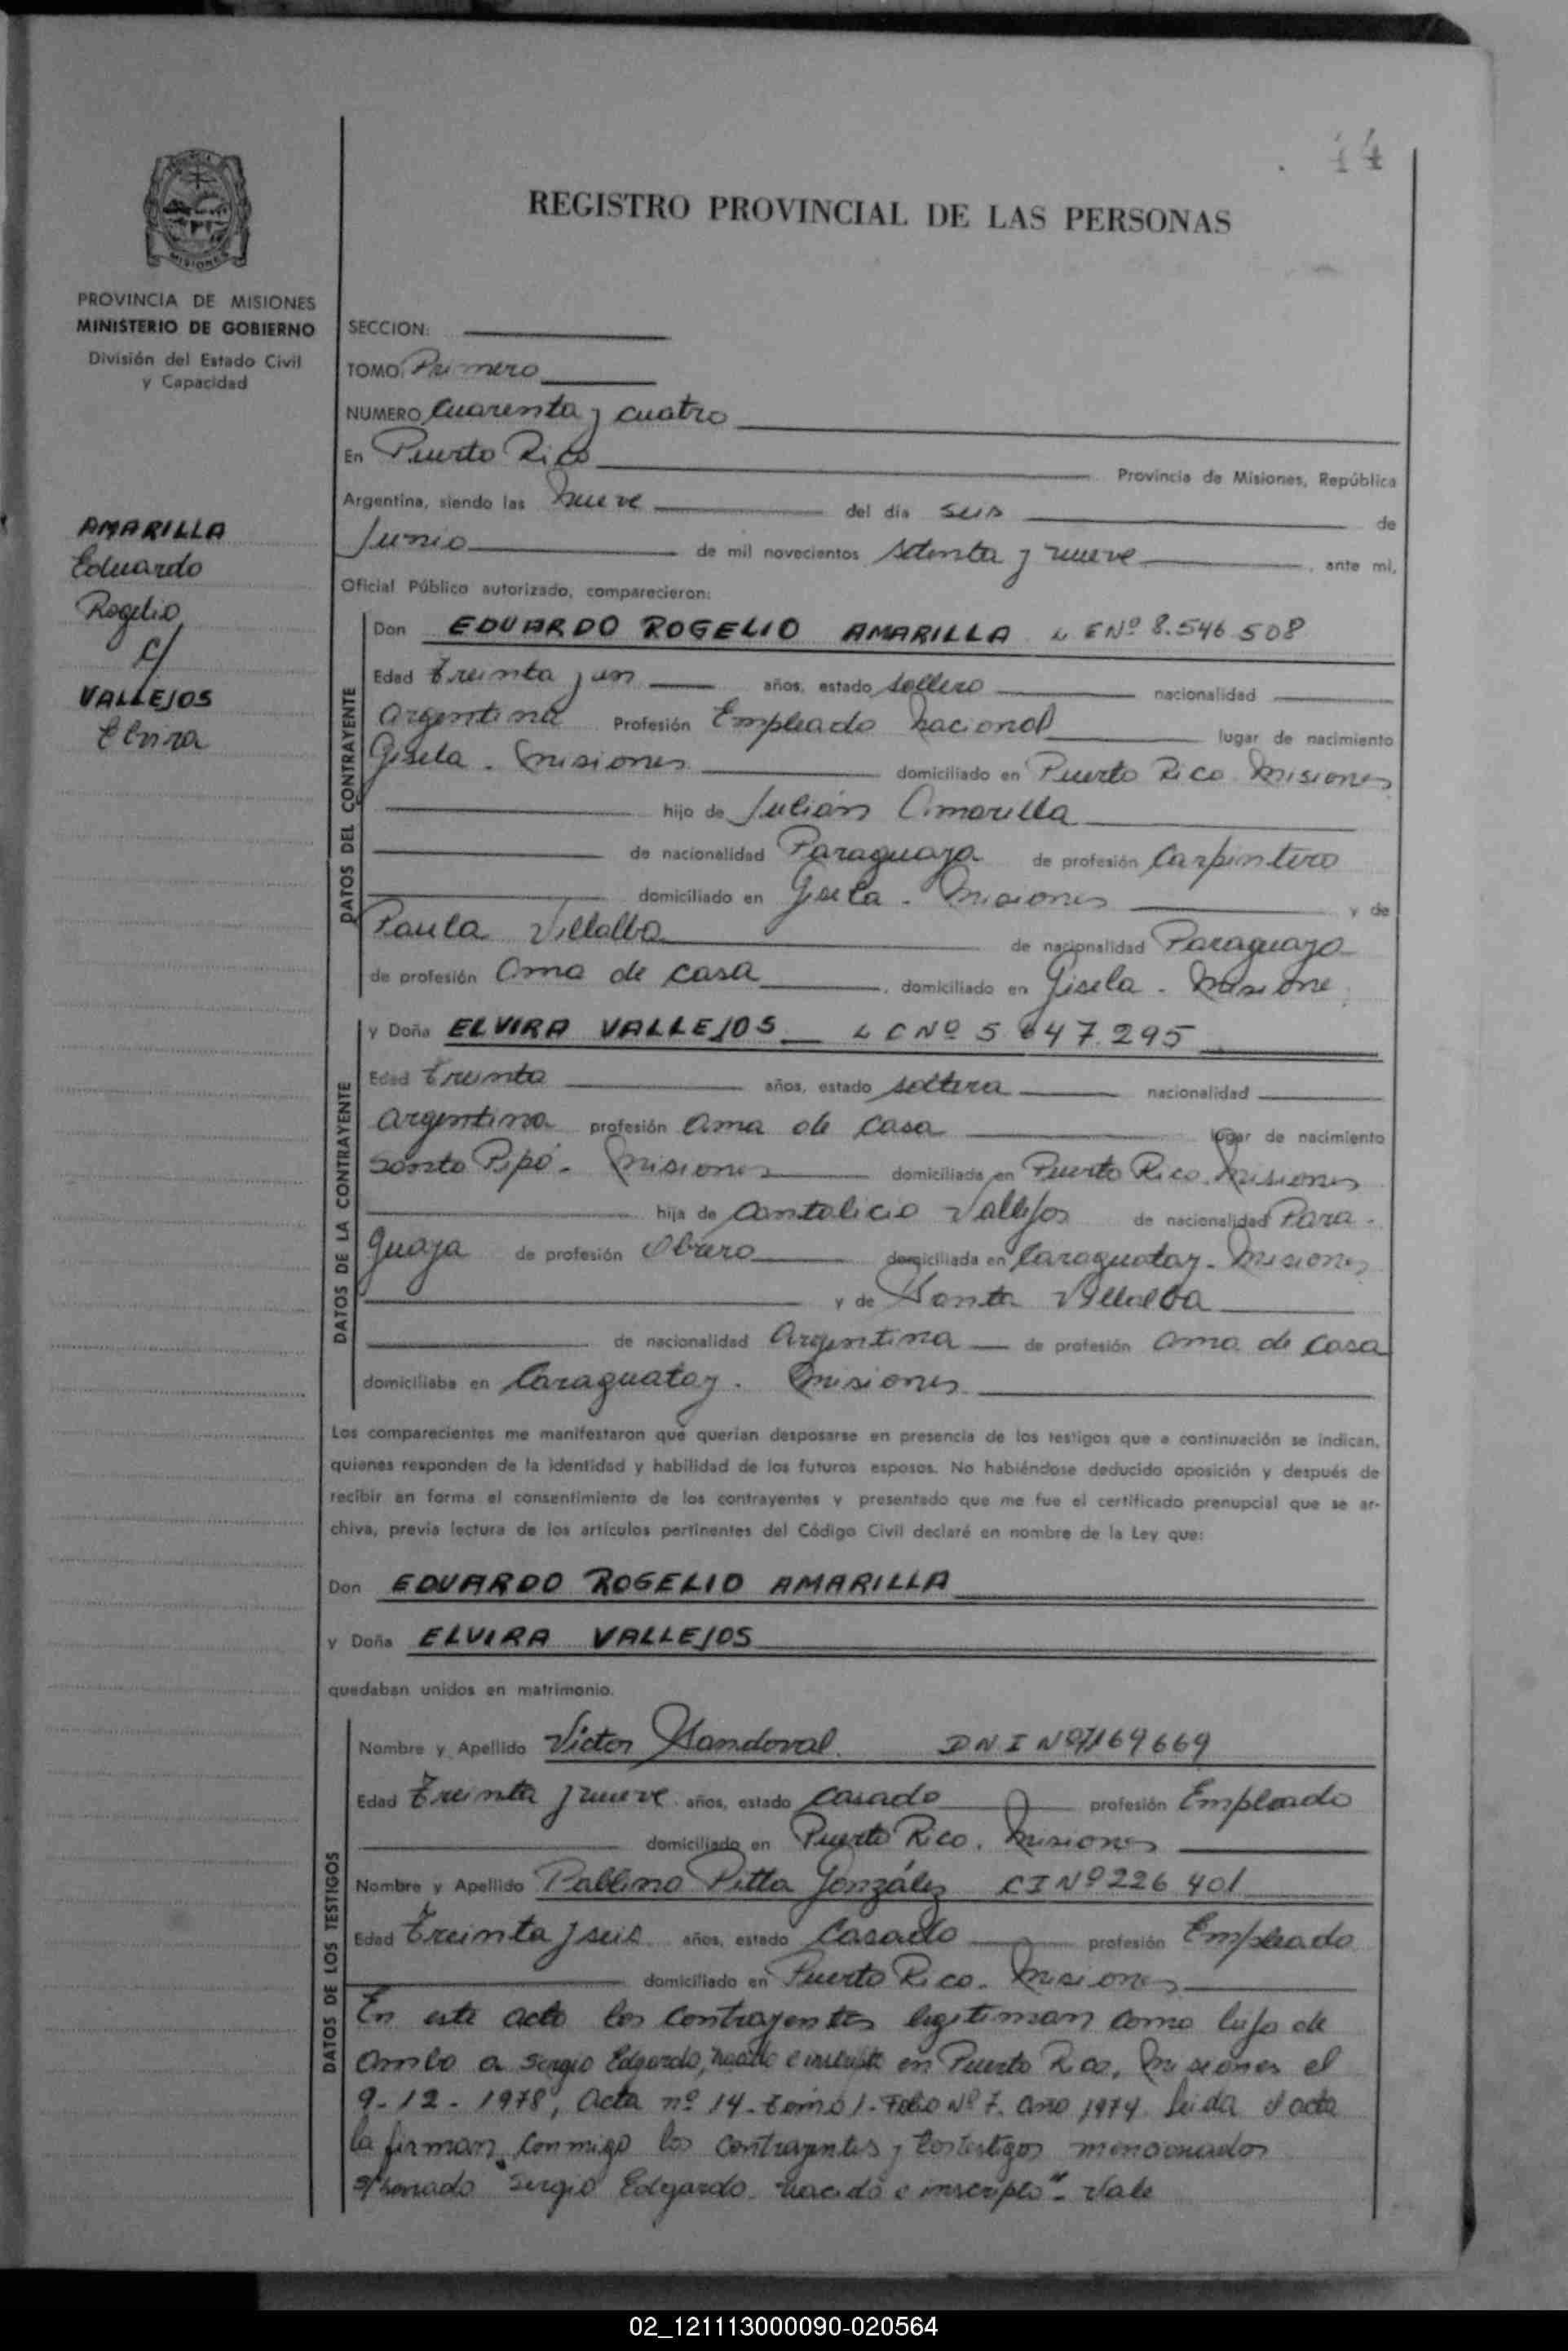 14
REGISTRO PROVINCIAL DE LAS PERSONAS
MISIONES
PROVINCIA DE MISIONES
MINISTERIO DE GOBIERNO
División del Estado Civil
y Capacidad
AMARILLA
Eduardo
Rogelio
c/
VALLEJOS
Elvira
SECCION:
TOMO: Primero
NUMERO Cuarenta y cuatro
En Puerto Rico Provincia de Misiones, República
Argentina, siendo las nueve del día seis de
Junio de mil novecientos setenta y nueve, ante mi,
Oficial Público autorizado, comparecieron:
DATOS DEL CONTRAYENTE
Don EDUARDO ROGELIO AMARILLA L E Nº 8.546 508
Edad treinta y un años, estado soltero nacionalidad
argentina Profesión Empleado nacional lugar de nacimiento
Gisela - Misiones domiciliado en Puerto Rico Misiones
hijo de Julián Amarilla
de nacionalidad Paraguaya de profesión Carpintero
domiciliado en Gisela - Misiones y de
Paula Villalba de nacionalidad Paraguaya
de profesión ama de casa, domiciliado en Gisela - Misione
DATOS DE LA CONTRAYENTE
y Doña ELVIRA VALLEJOS L C Nº 5 647.295
Edad treinta años, estado soltera nacionalidad
argentina profesión ama de casa lugar de nacimiento
Santo Pipó - Misiones domiciliada en Puerto Rico. Misiones
hija de Antalicio Vallejos de nacionalidad Para-
guaya de profesión Obrero domiciliada en Caraguatay - Misiones
y de Santa Villalba
de nacionalidad Argentina de profesión ama de casa
domiciliaba en Caraguatay. Misiones
Los comparecientes me manifestaron que querían desposarse en presencia de los testigos que a continuación se indican,
quienes responden de la identidad y habilidad de los futuros esposos. No habiéndose deducido oposición y después de
recibir en forma el consentimiento de los contrayentes y presentado que me fue el certificado prenupcial que se ar-
chiva, previa lectura de los artículos pertinentes del Código Civil declaré en nombre de la Ley que:
Don EDUARDO ROGELIO AMARILLA
y Doña ELVIRA VALLEJOS
quedaban unidos en matrimonio.
DATOS DE LOS TESTIGOS
Nombre y Apellido Víctor Sandoval. DNI Nº 7169669
Edad treinta y nueve años, estado casado profesión Empleado
domiciliado en Puerto Rico. Misiones
Nombre y Apellido Pablino Pitta González CI Nº 226 401
Edad treinta y seis años, estado Casado profesión Empleado
domiciliado en Puerto Rico. Misiones
En este acto los contrayentes legitiman como hijo de
ambo a Sergio Edgardo, nacido e inscripto en Puerto Rico, Misiones el
9-12-1978, acta nº 14-tomo 1-Folio Nº 7. año 1974. Leida el acta
la firman conmigo los contrayentes y los testigos mencionados
s/borrado "Sergio Edgardo. nacido e inscripto" - Vale
02_121113000090-020564